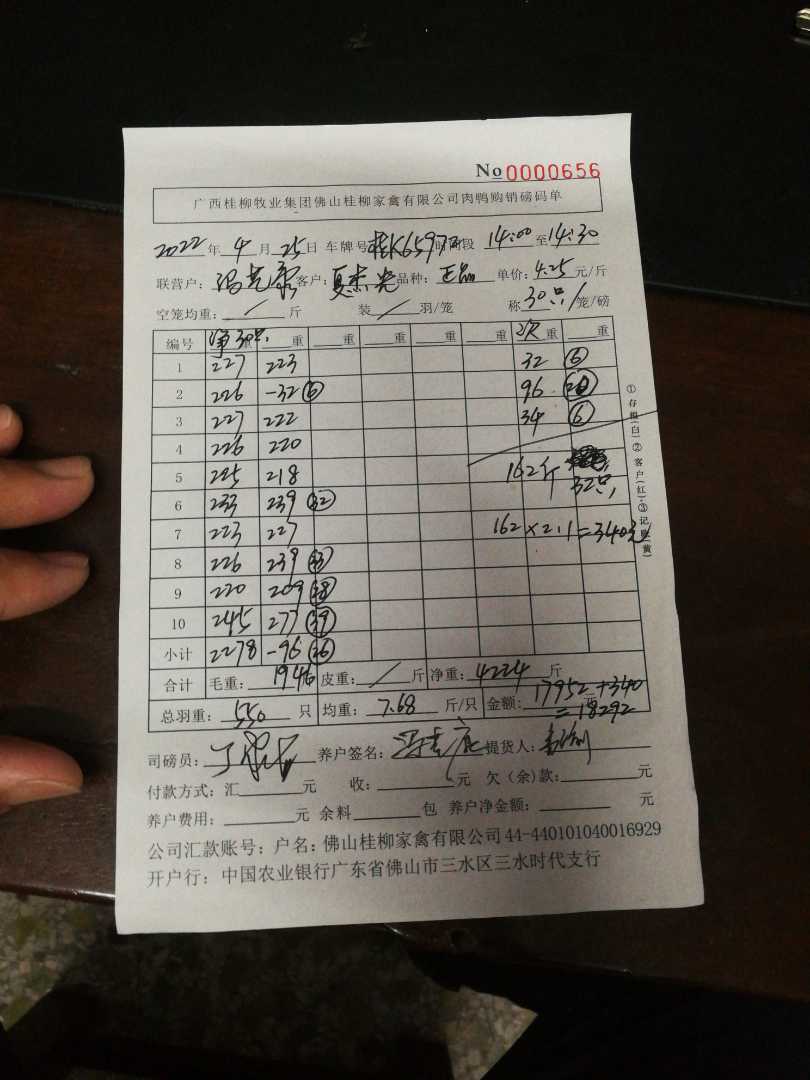 No 0000656
广西桂柳牧业集团佛山桂柳家禽有限公司肉鸭购销磅码单
2022年 4月 25日 车牌号:桂K6597 时间段 14:00至14:30
联营户: 客户:夏 品种:正品 单价:4.25元/斤
空笼均重:/斤 装/羽/笼 称30只/笼/磅
编号 净30只重 重 重 重 重 重 次重 重
1 227 223 32 ⑥
2 226 -32⑥ 96 ⑳
3 227 222 34 ⑥
4 226 220
5 225 218 162斤 32只
6 233 239㉜
7 223 227 162×2.1=340元
8 226 239㉝
9 220 209
10 245 277㊴
小计 2278 -96
合计 毛重:1946 皮重:/斤 净重:4224斤
总羽重:550只 均重:7.68斤/只 金额:17952+340元
=18292
司磅员: 养户签名: 提货人:
付款方式:汇 元 收: 元 欠(余)款: 元
养户费用: 元 余料 包 养户净金额: 元
公司汇款账号:户名:佛山桂柳家禽有限公司44-440101040016929
开户行:中国农业银行广东省佛山市三水区三水时代支行
①存根(白)②客户(红)③记账(黄)